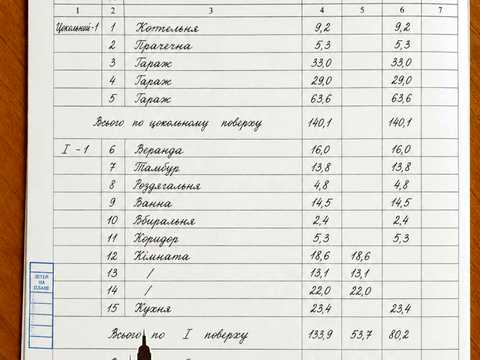 1 2 3 4 5 6 7
Цокольний-1 1 Котельня 9,2 9,2
2 Прачечна 5,3 5,3
3 Гараж 33,0 33,0
4 Гараж 29,0 29,0
5 Гараж 63,6 63,6
Всього по цокольному поверху 140,1 140,1
I - 1 6 Веранда 16,0 16,0
7 Тамбур 13,8 13,8
8 Роздягальня 4,8 4,8
9 Ванна 14,5 14,5
10 Вбиральня 2,4 2,4
11 Коридор 5,3 5,3
12 Кімната 18,6 18,6
13 / 13,1 13,1
14 / 22,0 22,0
15 Кухня 23,4 23,4
Всього по I поверху 133,9 53,7 80,2
ЛІТЕР
НА
ПЛАНІ